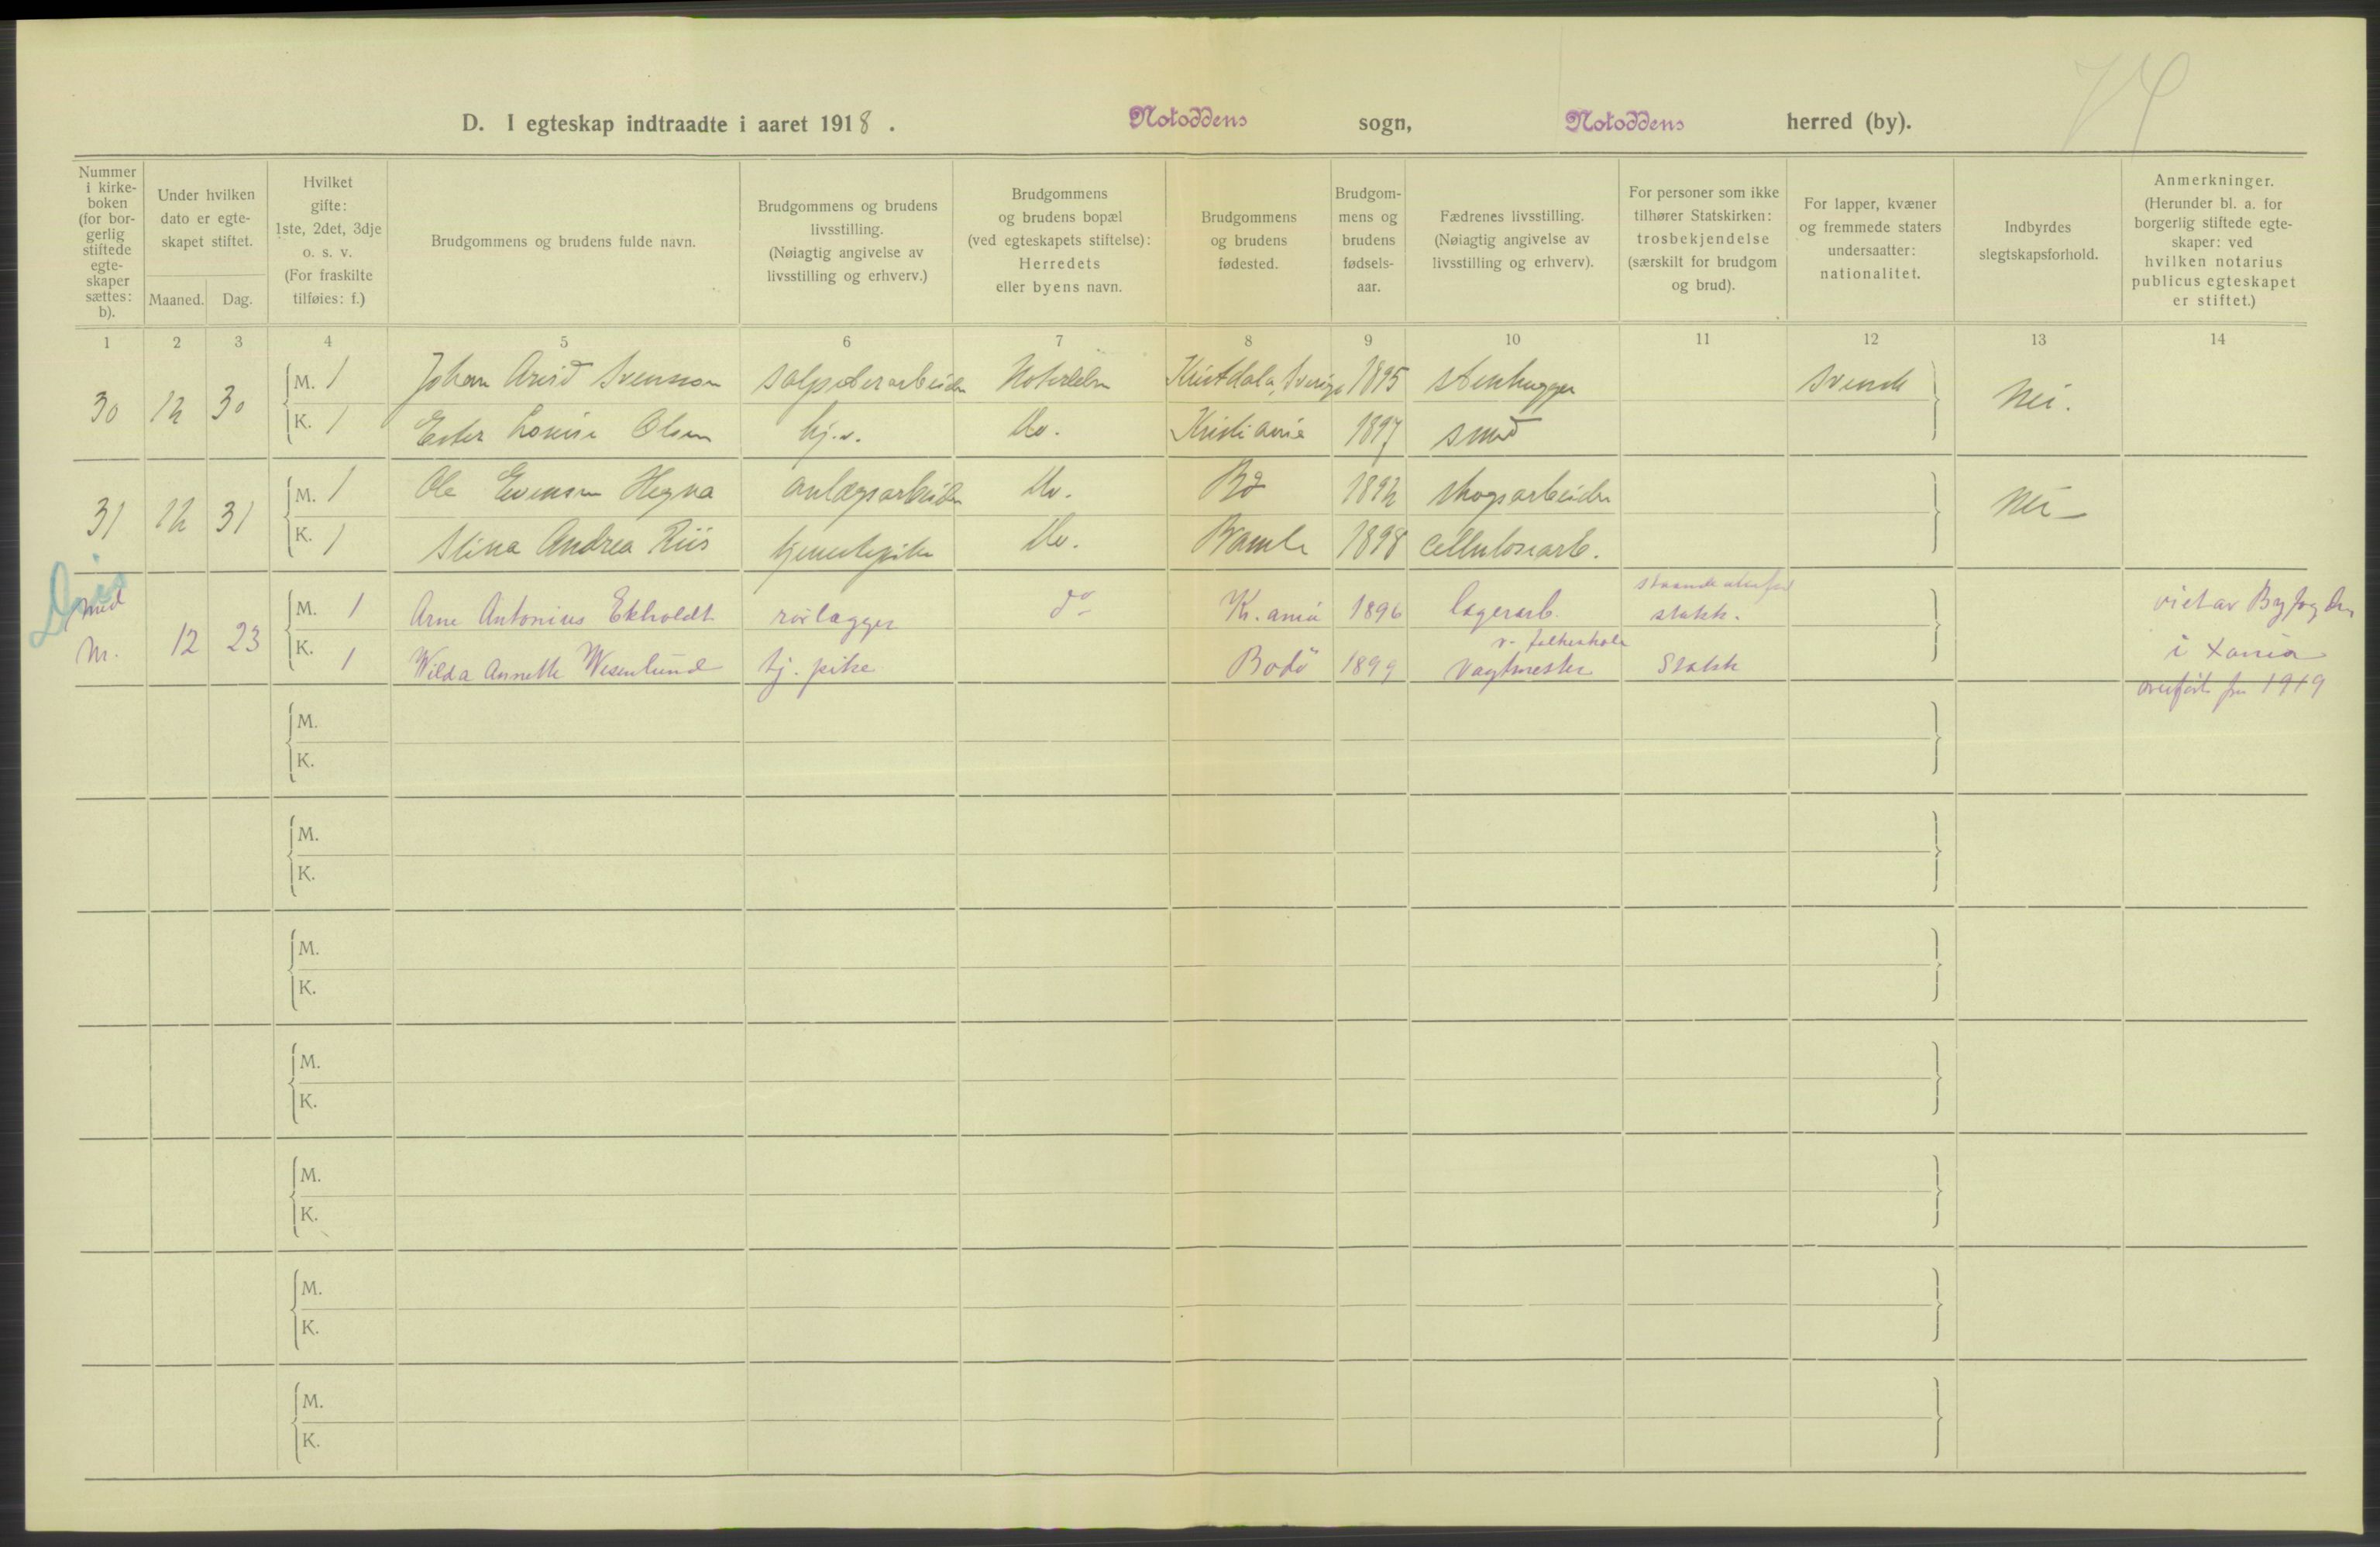 74
D. I egteskap indtraadte i aaret 1918. Notoddens sogn, Notoddens herred (by).
Nummer i kirke-boken (for bor-gerlig stiftede egte-skaper sættes: b).
Under hvilken dato er egte-skapet stiftet.
Maaned. Dag.
Hvilket gifte: 1ste, 2det, 3dje o. s. v. (For fraskilte tilføies: f.)
Brudgommens og brudens fulde navn.
Brudgommens og brudens livsstilling. (Nøiagtig angivelse av livsstilling og erhverv.)
Brudgommens og brudens bopæl (ved egteskapets stiftelse): Herredets eller byens navn.
Brudgommens og brudens fødested.
Brudgom-mens og brudens fødsels-aar.
Fædrenes livsstilling. (Nøiagtig angivelse av livsstilling og erhverv).
For personer som ikke tilhører Statskirken: trosbekjendelse (særskilt for brudgom og brud).
For lapper, kvæner og fremmede staters undersaatter: nationalitet.
Indbyrdes slegtskapsforhold.
Anmerkninger. (Herunder bl. a. for borgerlig stiftede egte-skaper: ved hvilken notarius publicus egteskapet er stiftet.)
1 2 3 4 5 6 7 8 9 10 11 12 13 14
30 12 30 M. 1 Johan Arvid Svensson salpeterarbeider Notodden Kristdala, Sverige 1895 stenhugger svensk Nei.
K. 1 Ester Louise Olsen hj.v. do. Kristiania 1897 smed
31 12 31 M. 1 Ole Evensen Hegna anlægsarbeider do. Bø 1892 skogsarbeider Nei
K. 1 Stina Andrea Riis tjenestepike do. Bamle 1898 Cellulosearb.
med
M. 12 23 M. 1 Arne Antonius Ekholdt rørlægger do K.ania 1896 lagerarb. staaende utenfor statsk. viet av Byfogden
K. 1 Wilda Annette Wesenlund tj. pike Bodø 1899 Vagtmester v. folkeskole Statsk i Xania
overført fra 1919
M.
K.
M.
K.
M.
K.
M.
K.
M.
K.
M.
K.
M.
K.